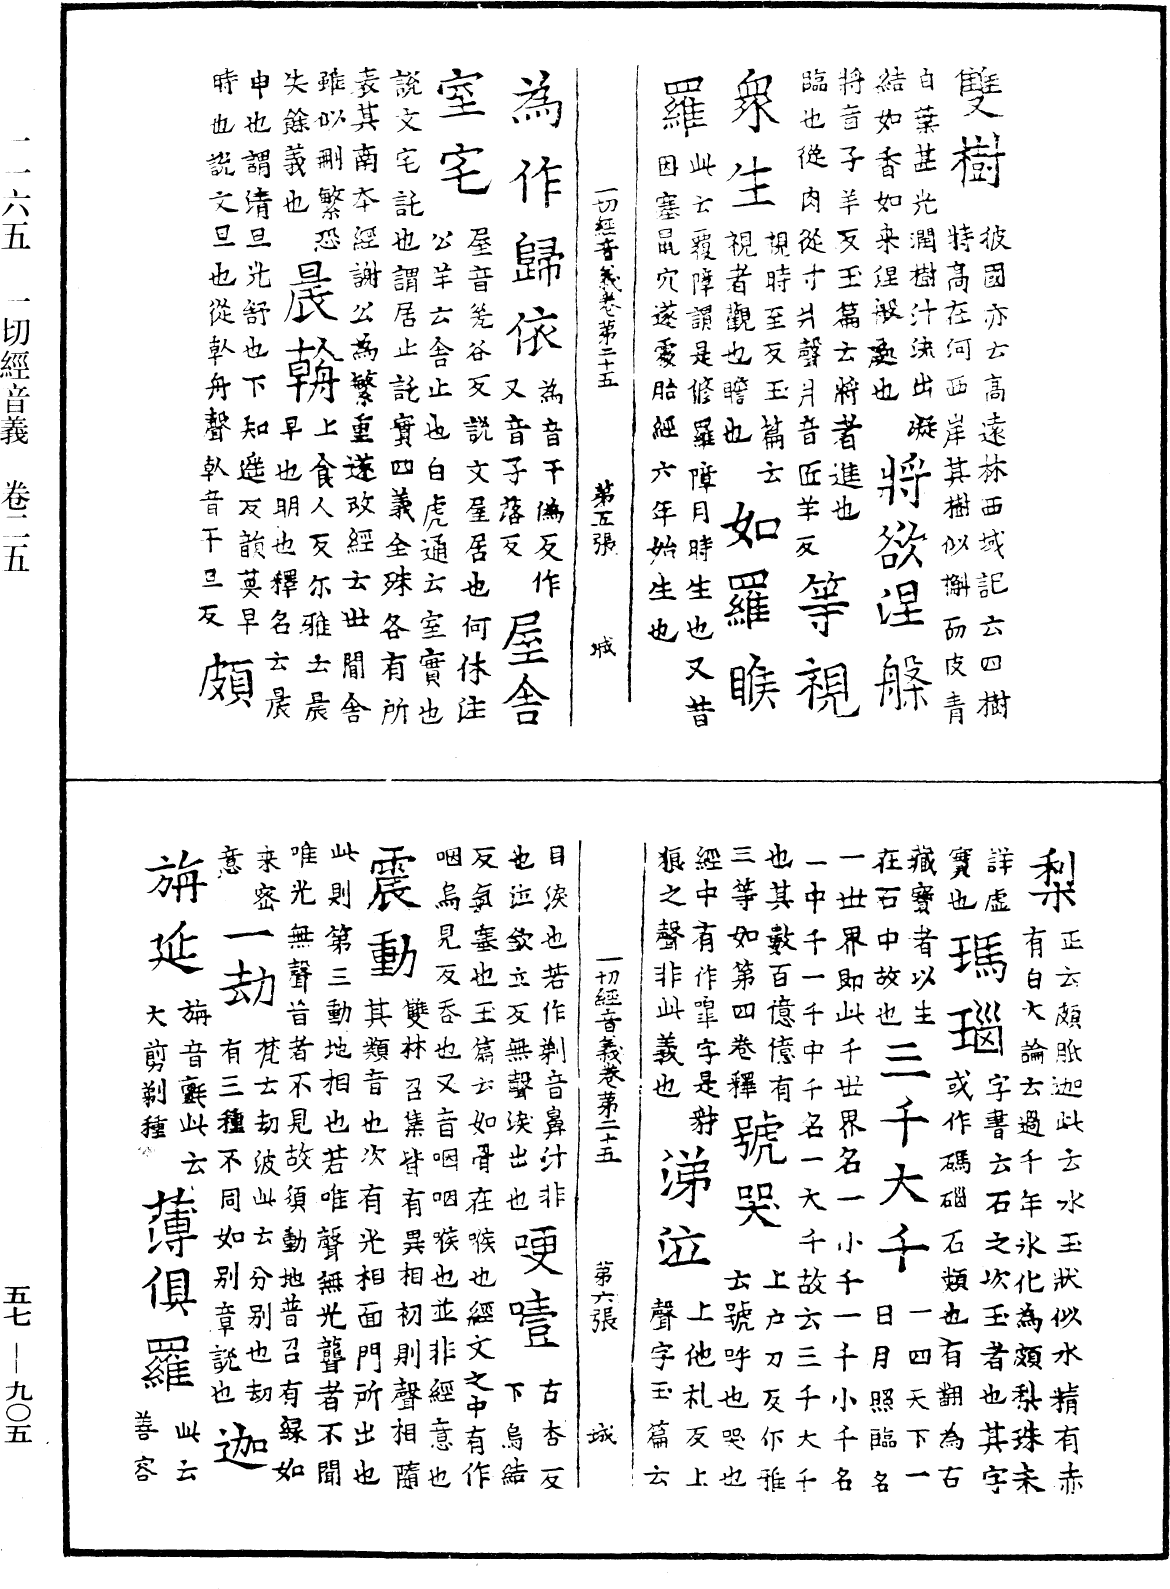 雙樹 彼國亦云高遠林西域記云四樹
特高在河西岸其樹似槲而皮青
白葉甚光潤樹汁流出凝
結如香如來涅般處也 將欲涅槃
將音子羊反玉篇云將者進也
臨也從肉從寸爿聲爿音匠羊反 等視
視時至反玉篇云
視者觀也瞻也 如羅睺
羅 此云覆障謂是修羅障月時生也又昔
因塞鼠穴遂處胎經六年始生也
一切經音義卷第二十五 第五張 城
為作歸依 為音干偽反作
又音子落反 屋舍
屋音筦谷反說文屋居也何休注
公羊云舍止也白虎通云室實也
室宅
說文宅託也謂居止託實四義全殊各有所
表其南本經謝公為繁重遂改經云世間舍
雖似刪繁恐
失餘義也 晨朝 上食人反尔雅云晨
早也明也釋名云晨
申也謂清旦光舒也下知遙反韻英早
時也說文旦也從倝舟聲倝音干旦反 頗
梨 正云頗胝迦此云水玉狀似水精有赤
有白大論云過千年氷化為頗梨珠未
詳虛
實也 瑪瑙 字書云石之次玉者也其字
或作碼碯石類也有翻為右
藏寶者以生
在石中故也 三千大千 一四天下一
日月照臨名
一世界即此千世界名一小千一千小千名
一中千一千中千名一大千故云三千大千
也其數百億億有
三等如第四卷釋 號哭 上戶刀反尔雅
云號呼也哭也
經中有作嘷字是豺
狼之聲非此義也 涕泣 上他札反上
聲字玉篇云
一切經音義卷第二十五 第六張 城
目淚也若作剃音鼻汁非
也泣欽立反無聲淚出也 哽噎 古杏反
下烏結
反氣塞也玉篇云如骨在喉也經文之中有作
咽烏見反吞也又音咽咽喉也並非經意也
震動 雙林召集皆有異相初則聲相隨
其類音也次有光相面門所出也
此則第三動地相也若唯聲無光聾者不聞
唯光無聲盲者不見故須動地普召有緣如
来密
意 一劫 梵云劫波此云分別也劫
有三種不同如別章說也 迦
旃延 旃音氈此云
大剪剃種 薄俱羅 此云
善容
一一六五 一切經音義 卷二五
五七—九〇五